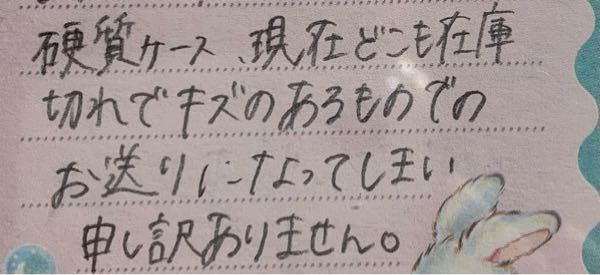 硬質ケース、現在どこも在庫
切れでキズのあるものでの
お送りになってしまい
申し訳ありません。